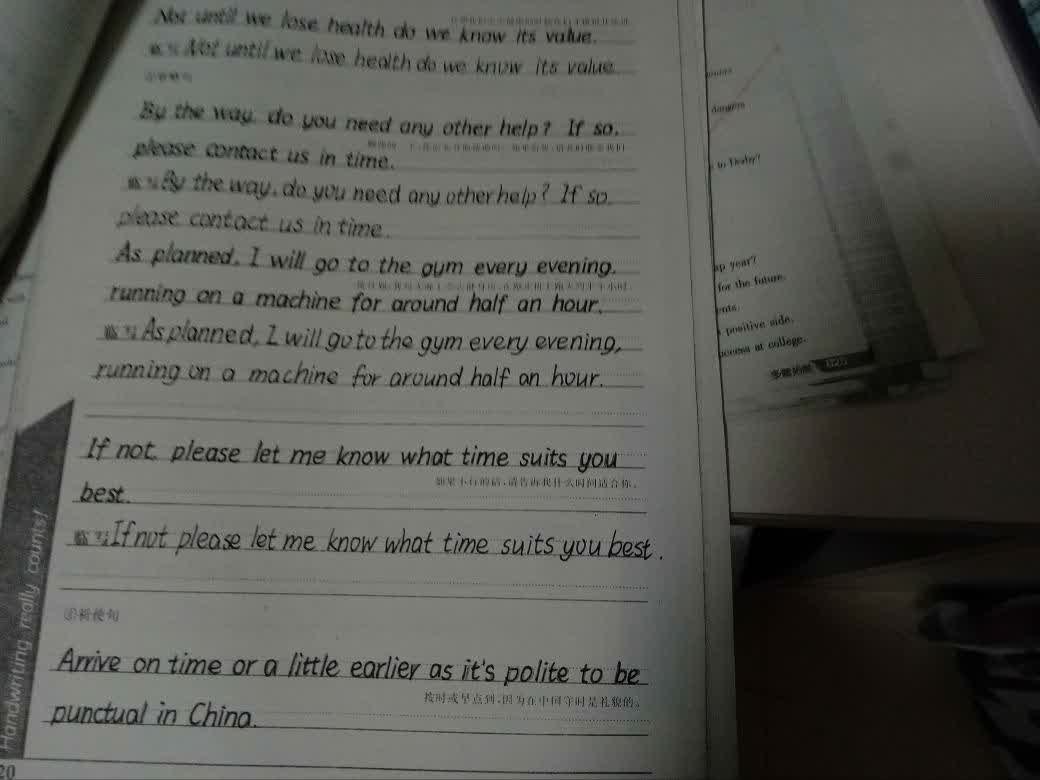 Not until we lose health do we know its value.
Not until we lose health do we know its value.
By the way, do you need any other help? If so,
please contact us in time.
临写 By the way, do you need any other help? If so,
please contact us in time.
As planned, I will go to the gym every evening,
running on a machine for around half an hour.
临写 As planned, I will go to the gym every evening,
running on a machine for around half an hour.
If not, please let me know what time suits you
如果不行的话,请告诉我什么时间适合你。
best.
临写 If not please let me know what time suits you best.
⑤祈使句
Arrive on time or a little earlier as it's polite to be
按时或早点到,因为在中国守时是礼貌的。
punctual in China.
Handwriting really counts!
20
dangers
to Derby?
ap year?
for the future.
positive side.
at college.